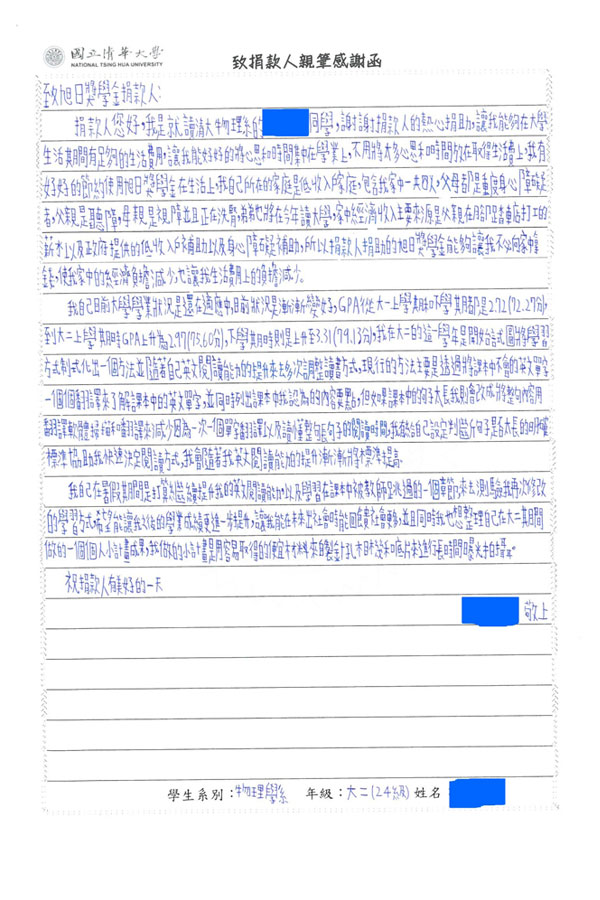 國立清華大學
NATIONAL TSING HUA UNIVERSITY
致捐款人親筆感謝函
致旭日獎學金捐款人:
捐款人您好,我是就讀清大物理系的 同學,謝謝捐款人的熱心捐助,讓我能夠在大學
生活期間有足夠的生活費用,讓我能好好的將心思和時間集中在學業上,不用將太多心思和時間放在取得生活費上,我有
好好的節約使用旭日獎學金在生活上,我自己所在的家庭是低收入戶家庭,包含我家中一共四人,父母都是重度身心障礙
者,父親是聽障,母親是視障並且正在洗腎,弟弟也將在今年讀大學,家中經濟收入主要來源是父親在腳踏車店打工的
薪水以及政府提供的低收入戶補助以及身心障礙補助,所以捐款人捐助的旭日獎學金能夠讓我不必向家中拿
錢,使我家中的經濟負擔減少,也讓我生活費用上的負擔減少。
我自己目前大學學業狀況是還在適應中,目前狀況是漸漸變好,GPA從大一上學期和下學期都是2.72(72.27分),
到大二上學期時GPA上升為2.97(75.60分),下學期時則是上升至3.31(79.13分),我在大二的這一學年是開始試圖將學習
方式制式化出一個方法並隨著自己英文閱讀能力的提升來去多次調整讀書方式,現行的方法主要是透過將課本中不會的英文單字
一個個翻譯來了解課本中的英文單字,並同時列出課本中我認為的內容要點,但如果課本中的句子太長我則會改成將整句內容用
翻譯軟體掃描和翻譯來減少因為一次一個單字翻譯以及讀懂整句長句子的閱讀時間,我會給自己設定判斷句子是否太長的明確
標準協助我快速決定閱讀方式,我會隨著我英文閱讀能力的提升漸漸將標準提高。
我自己在暑假期間是打算繼續提升我的英文閱讀能力以及學習在課本中被教師跳過的一個章節來去測驗我再次修改
的學習方式,希望能讓我之後的學業成績更進一步提升,讓我能在未來出社會時能回饋社會,並且同時我也想整理自己在大二其間
做的一個個人小計畫成果,我做的小計畫是用容易取得的便宜材料來自製針孔相機和底片來進行長時間曝光拍攝。
祝捐款人有美好的一天
敬上
學生系別:物理學系 年級:大二(24級) 姓名